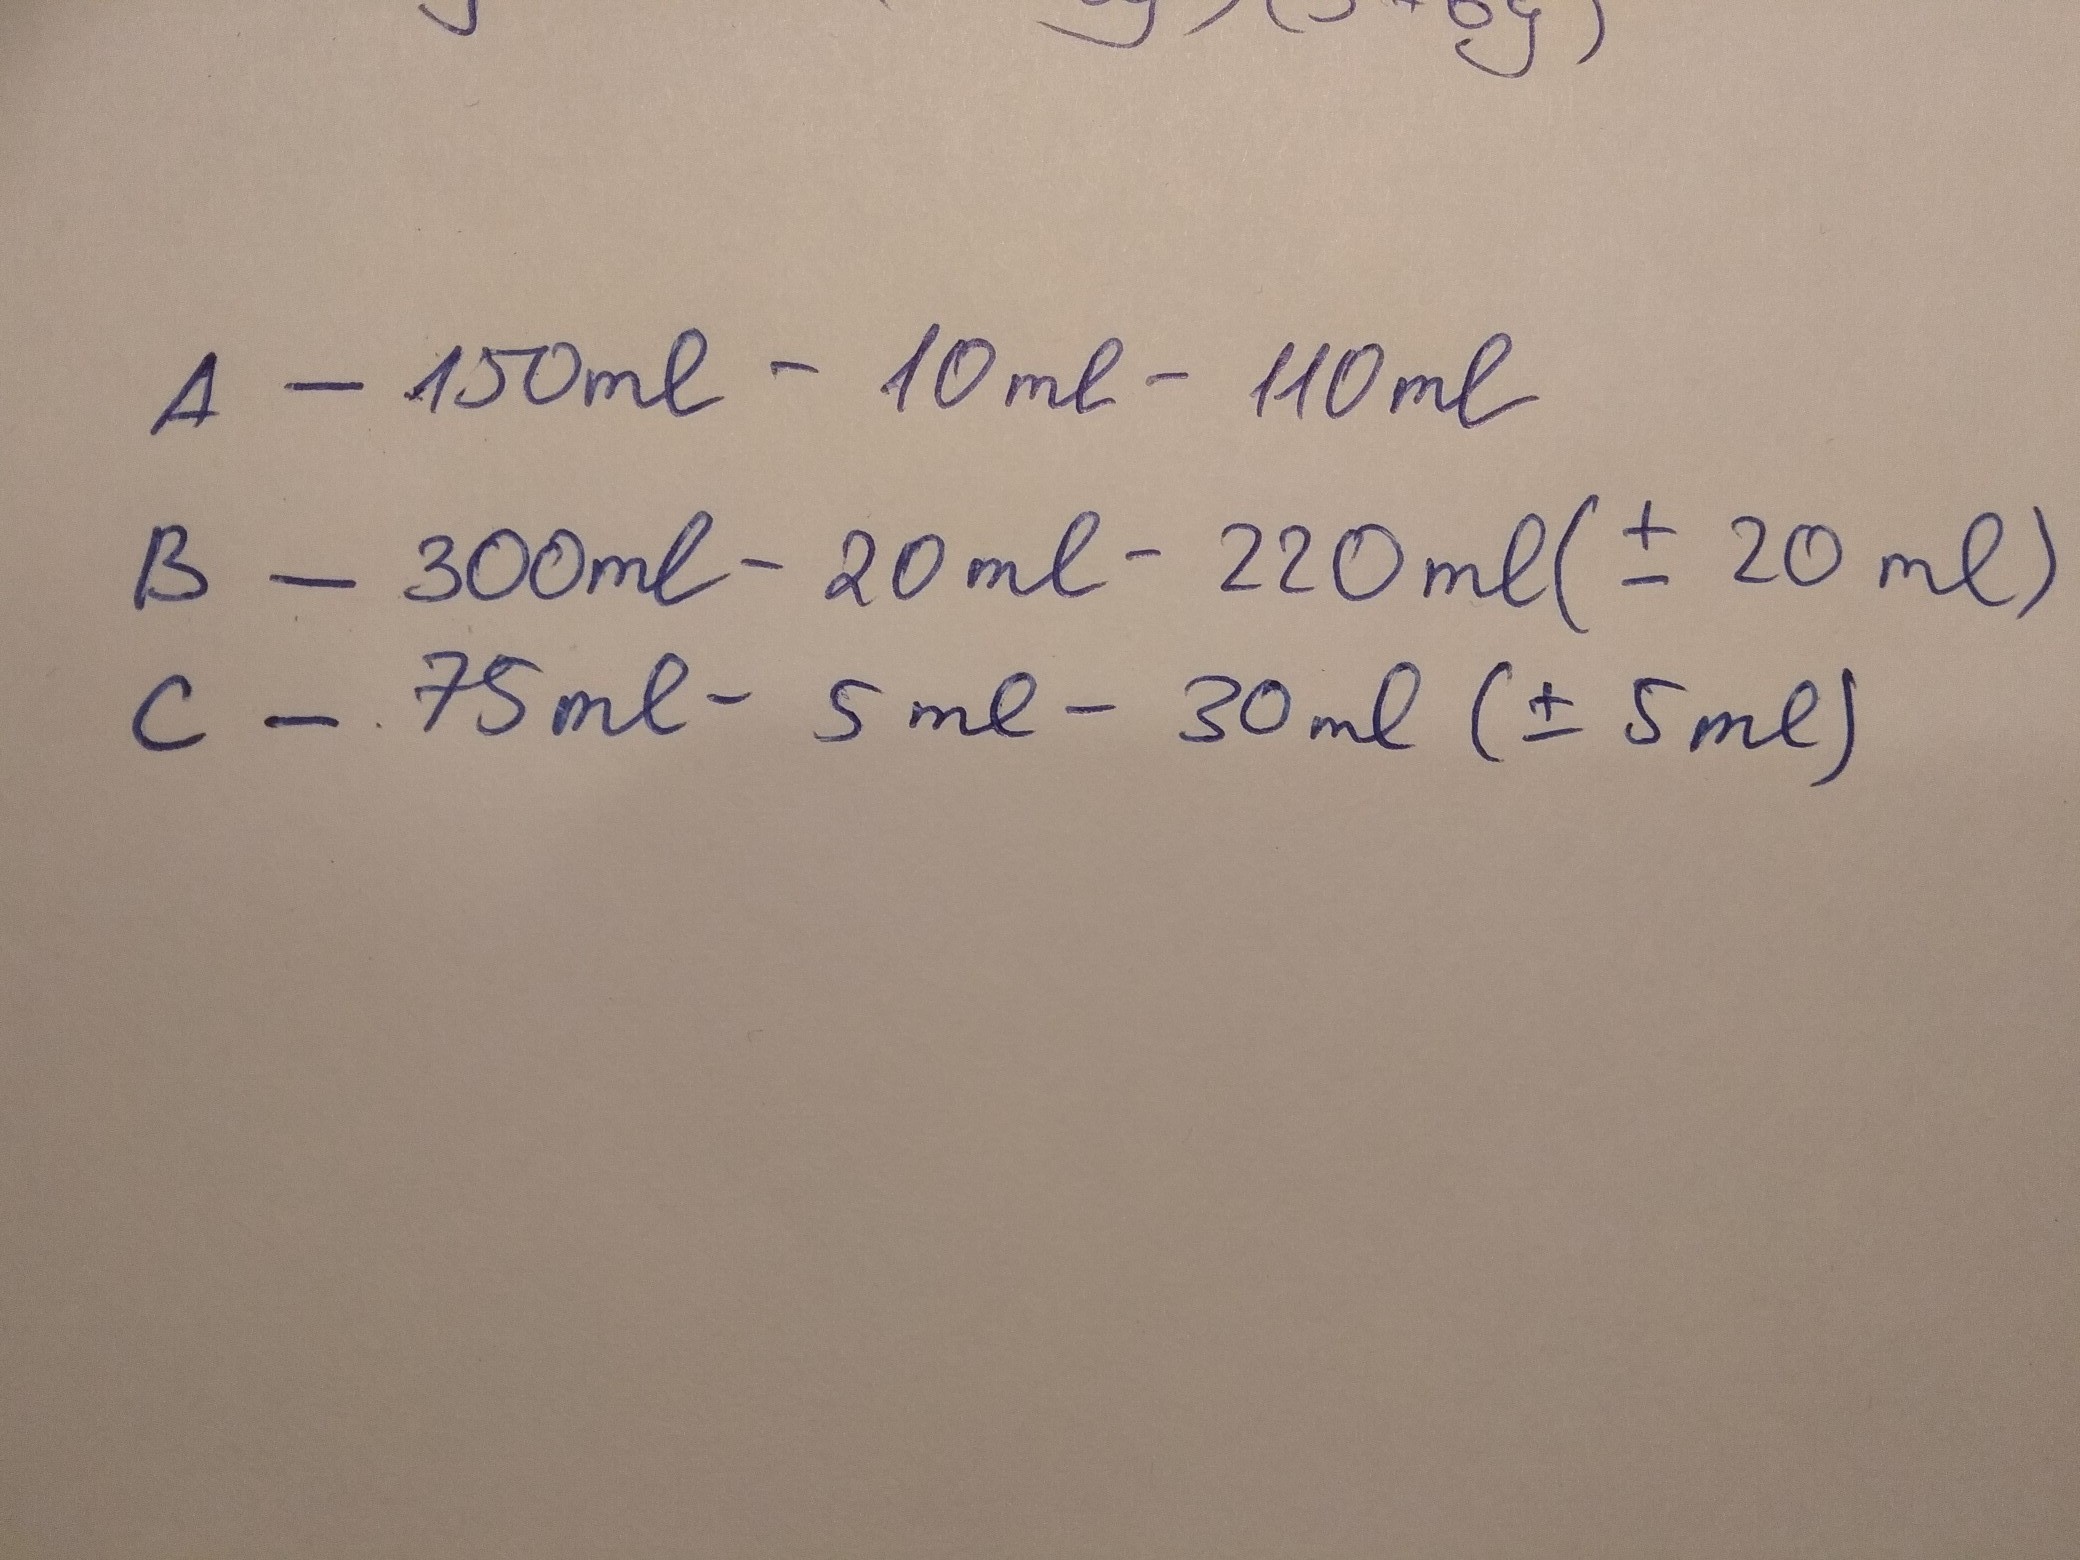 A — 150ml - 10ml - 110ml
B — 300ml - 20ml - 220ml (± 20ml)
C — 75ml - 5ml - 30ml (± 5ml)